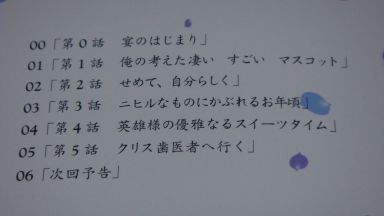 00「第0話　宴のはじまり」
01「第1話　俺の考えた凄い　すごい　マスコット」
02「第2話　せめて、自分らしく」
03「第3話　ニヒルなものにかぶれるお年頃」
04「第4話　英雄様の優雅なるスイーツタイム」
05「第5話　クリス歯医者へ行く」
06「次回予告」